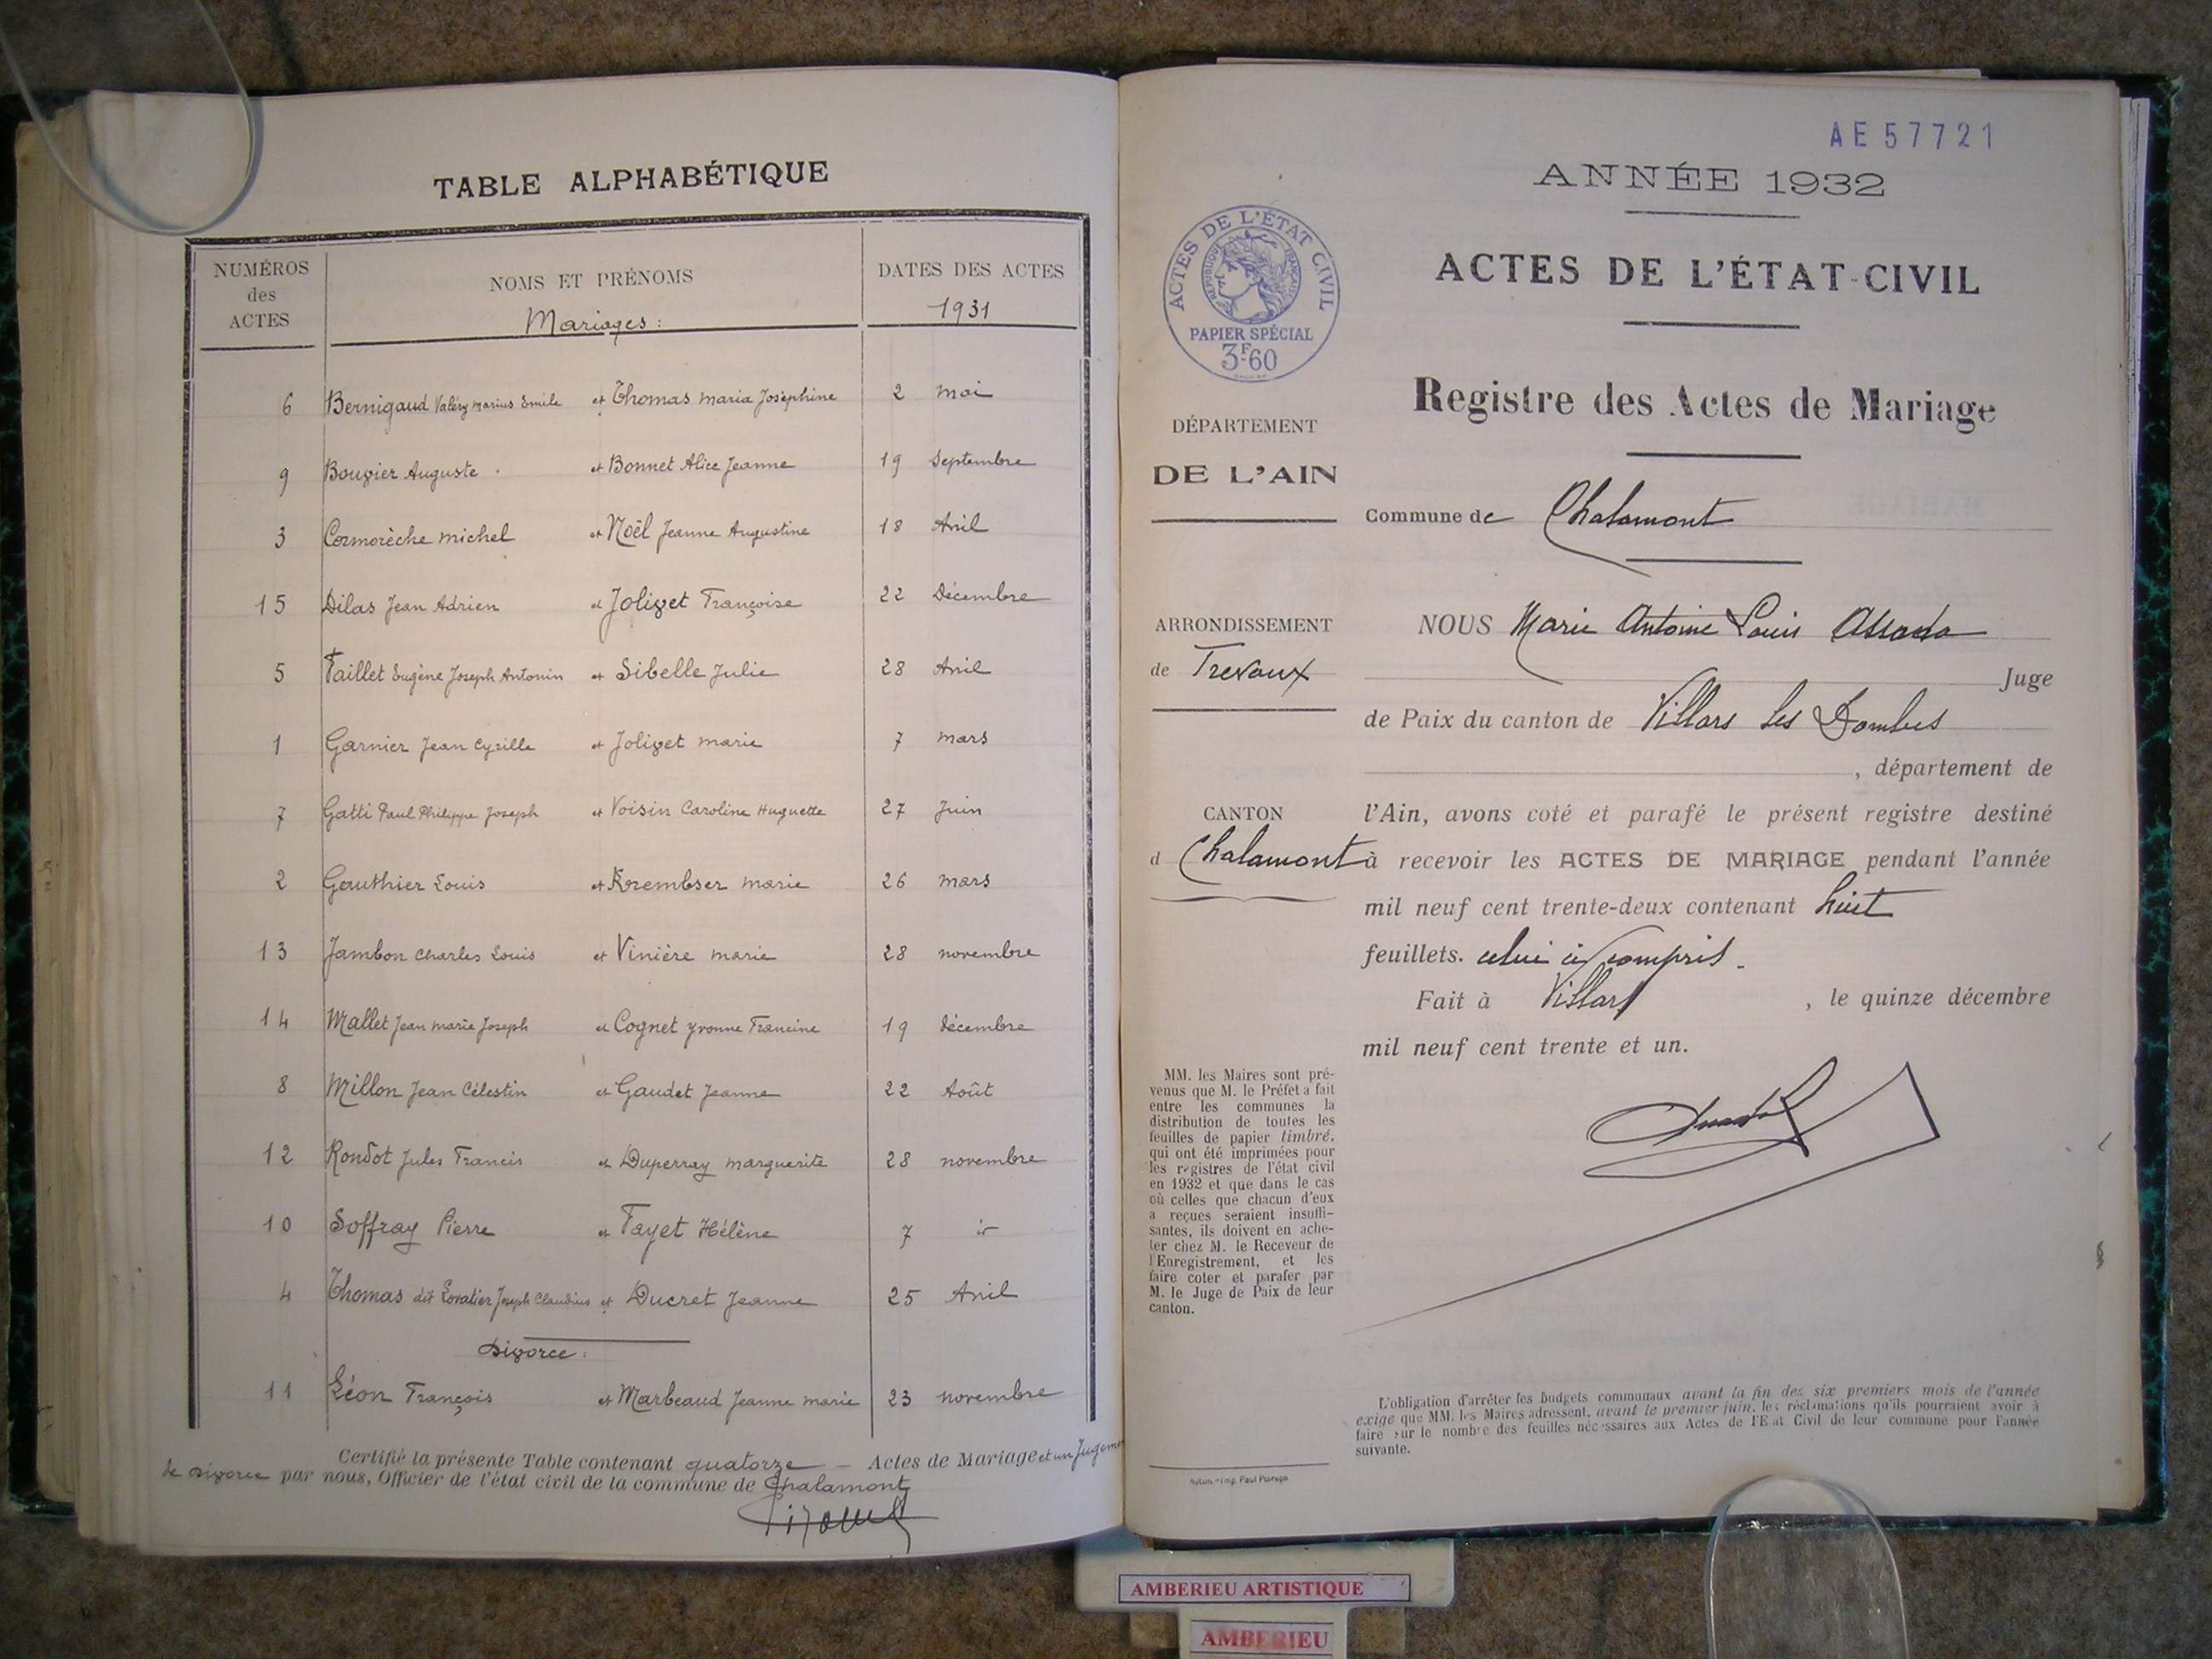 TABLE ALPHABÉTIQUE
NUMÉROS des ACTES
NOMS ET PRÉNOMS
DATES DES ACTES
Mariages :
1931
6 Bernigaud Valéry Marius Emile et Thomas Maria Joséphine 2 mai
9 Bouvier Auguste et Bonnet Alice Jeanne 19 Septembre
3 Cormorèche Michel et Noël Jeanne Augustine 18 Avril
15 Dilas Jean Adrien et Jolivet Françoise 22 Décembre
5 Faillet Eugène Joseph Antonin et Sibelle Julie 28 Avril
1 Garnier Jean Cyrille et Jolivet Marie 7 mars
7 Gatti Paul Philippe Joseph et Voisin Caroline Huguette 27 Juin
2 Gauthier Louis et Krembser Marie 26 mars
13 Jambon Charles Louis et Vinière Marie 28 novembre
14 Mallet Jean Marie Joseph et Cognet Yvonne Francine 19 décembre
8 Millon Jean Célestin et Gaudet Jeanne 22 Août
12 Rondot Jules Francis et Duperray Marguerite 28 novembre
10 Soffray Pierre et Fayet Hélène 7 d°
4 Thomas dit Lovatier Joseph Claudius et Ducret Jeanne 25 Avril
Divorce :
11 Léon François et Marbeaud Jeanne Marie 23 novembre
Certifié la présente Table contenant quatorze — Actes de Mariage et un Jugement
de divorce par nous, Officier de l'état civil de la commune de Chalamont
AE 57721
ANNÉE 1932
ACTES DE L'ÉTAT CIVIL
RÉPUBLIQUE FRANÇAISE
PAPIER SPÉCIAL
3F60
ACTES DE L'ÉTAT-CIVIL
Registre des Actes de Mariage
DÉPARTEMENT
DE L'AIN
Commune de Chalamont
ARRONDISSEMENT
de Trévoux
NOUS Marie Antoine Louis
Juge
de Paix du canton de Villars les Dombes
, département de
CANTON
d Chalamont
l'Ain, avons coté et parafé le présent registre destiné
à recevoir les ACTES DE MARIAGE pendant l'année
mil neuf cent trente-deux contenant huit
feuillets. celui ci compris.
Fait à Villars , le quinze décembre
mil neuf cent trente et un.
MM. les Maires sont pré-
venus que M. le Préfet a fait
entre les communes la
distribution de toutes les
feuilles de papier timbré,
qui ont été imprimées pour
les registres de l'état civil
en 1932 et que dans le cas
où celles que chacun d'eux
a reçues seraient insuffi-
santes, ils doivent en ache-
ter chez M. le Receveur de
l'Enregistrement, et les
faire coter et parafer par
M. le Juge de Paix de leur
canton.
L'obligation d'arrêter les budgets communaux avant la fin des six premiers mois de l'année
exige que MM. les Maires adressent, avant le premier juin, les réclamations qu'ils pourraient avoir à
faire sur le nombre des feuilles nécessaires aux Actes de l'Etat Civil de leur commune pour l'année
suivante.
Autun - Imp. Paul
AMBERIEU ARTISTIQUE
AMBERIEU